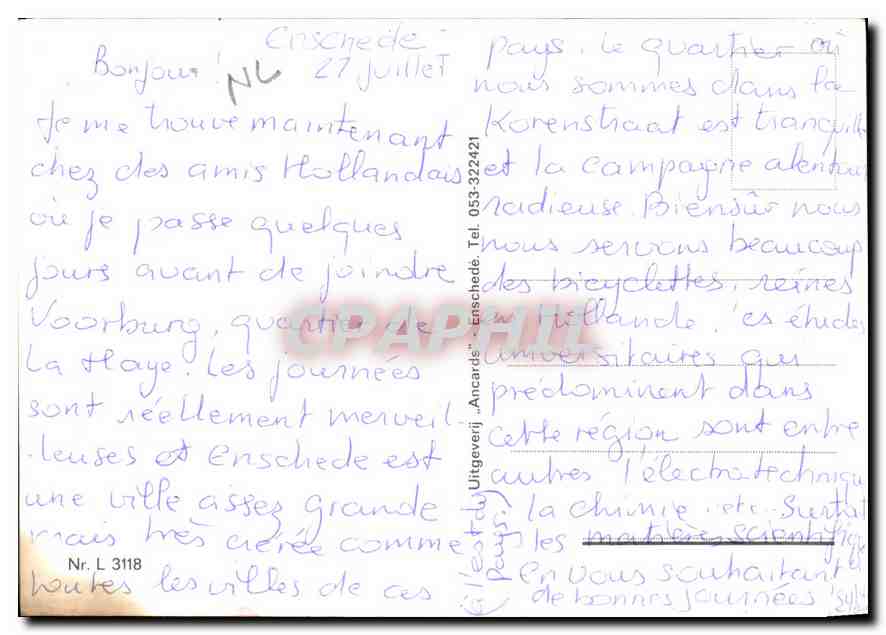 Enschede
Bonjour! NL 27 juillet
Je me trouve maintenant
chez des amis Hollandais
où je passe quelques
jours avant de joindre
Voorburg, quartier de
La Haye. Les journées
sont réellement merveil-
leuses et Enschede est
une ville assez grande
mais très aérée comme
toutes les villes de ces
(à l'est du
pays)
pays. Le quartier où
nous sommes dans la
Korenstraat est tranquille
et la campagne alentour
radieuse. Biensûr nous
nous servons beaucoup
des bicyclettes, reines
en Hollande. Les études
universitaires qui
prédominent dans
cette région sont entre
autres l'électrotechnique
la chimie etc.. Surtout
les matières scientifiques
En vous souhaitant
de bonnes journées
Nr. L 3118
Uitgeverij „Ancards" - Enschedé. Tel. 053-322421
CPAPHIL